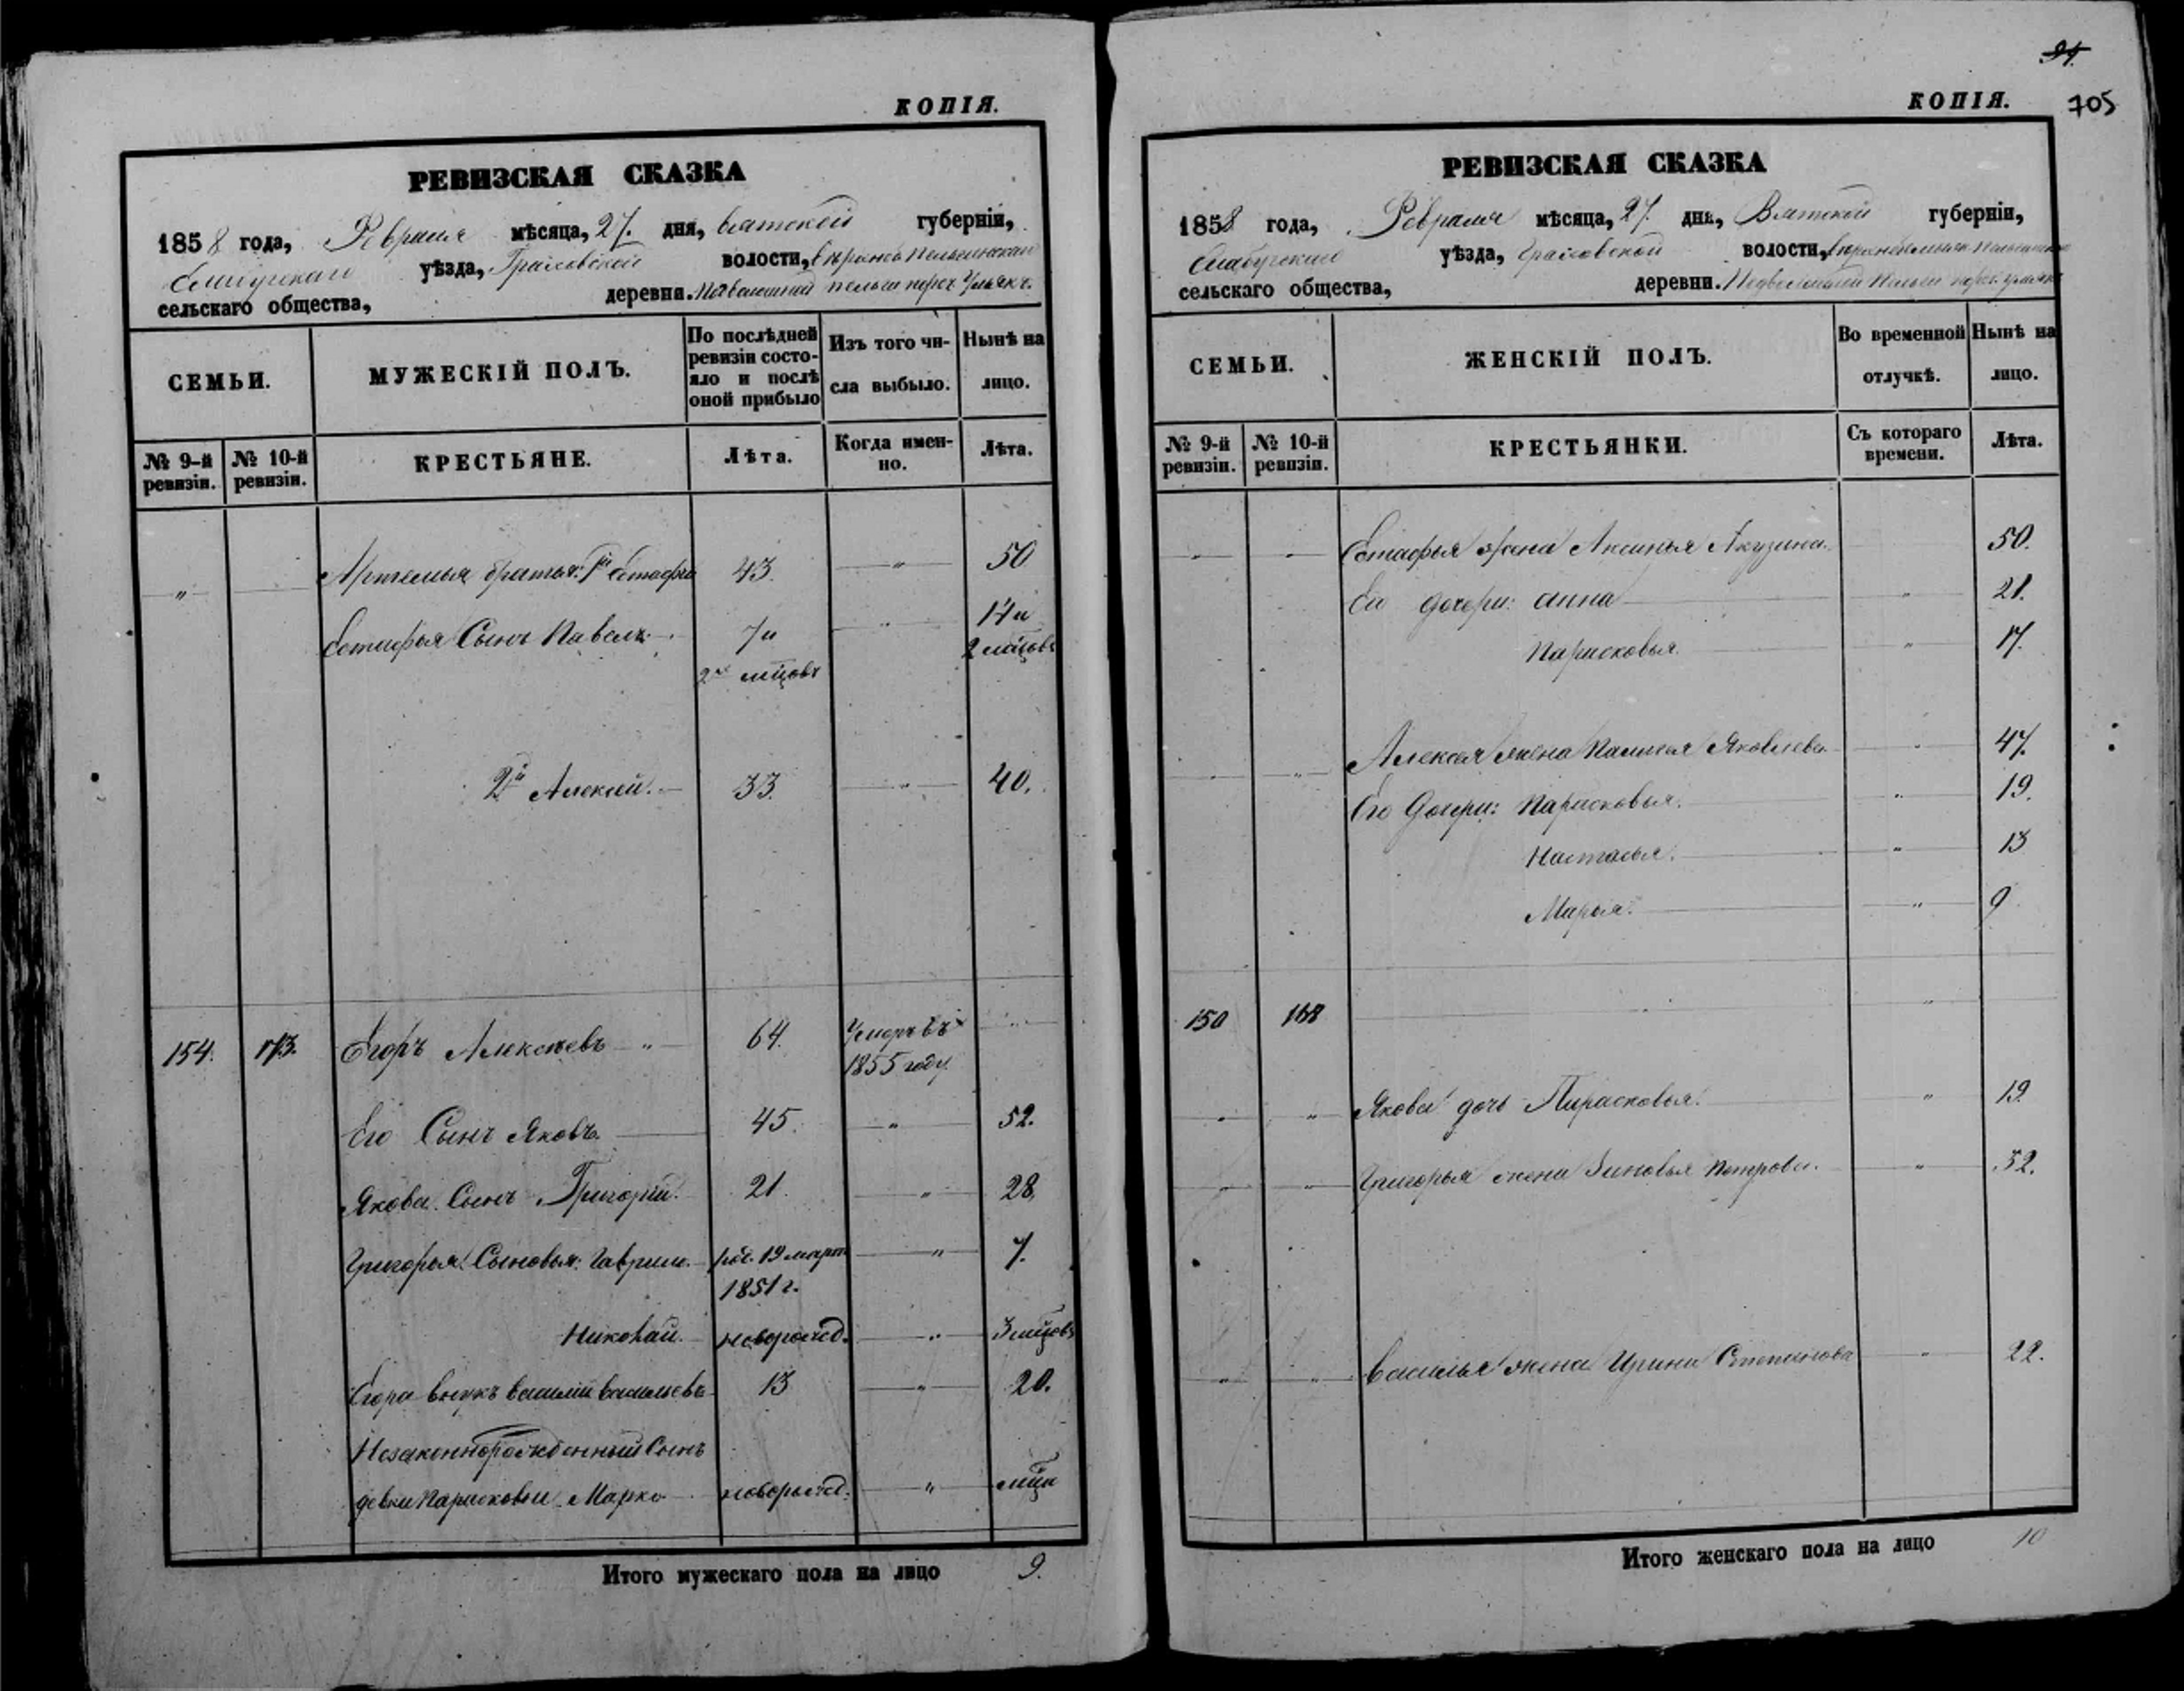 КОПІЯ.
РЕВИЗСКАЯ СКАЗКА
1858 года, Февраля мѣсяца, 27. дня, Вятской губерніи,
уѣзда, волости,
сельскаго общества, деревни.
СЕМЬИ.
МУЖЕСКІЙ ПОЛЪ.
По послѣдней ревизіи состояло и послѣ оной прибыло
Изъ того числа выбыло.
Нынѣ на лицо.
№ 9-й ревизіи.
№ 10-й ревизіи.
КРЕСТЬЯНЕ.
Лѣта.
Когда именно.
Лѣта.
Артемья братья: 1й Естафій 43. " 50
Естафья Сынъ Павелъ 7 и " 14 и
2хъ мцовъ 2 мцовъ
2й Алексѣй. 33. " 40.
154. 173. Егоръ Алексѣевъ " 64. Умеръ въ
1855 году
Его Сынъ Яковъ. 45. " 52.
Якова Сынъ Григорій. 21. " 28.
Григорья Сыновья: Гаврило. рож. 19 март " 7.
1851 г.
Николай. новорожд. " 3 мцовъ
Егора внукъ Василій Васильевъ 13 " 20.
Незаконнорожденный Сынъ
девки Парасковьи Марко новорожд. " мца
Итого мужескаго пола на лицо 9.
94.
КОПІЯ. 705
РЕВИЗСКАЯ СКАЗКА
1858 года, Февраля мѣсяца, 27. дня, Вятской губерніи,
Елабугскаго уѣзда, волости,
сельскаго общества, деревни.
СЕМЬИ.
ЖЕНСКІЙ ПОЛЪ.
Во временной отлучкѣ.
Нынѣ на лицо.
№ 9-й ревизіи.
№ 10-й ревизіи.
КРЕСТЬЯНКИ.
Съ котораго времени.
Лѣта.
" " Естафья жена Аксинья Акузина. 50.
Его дочери: Анна " 21.
Парасковья. " 17.
" " Алексѣя жена Палагея Яковлева " 47.
Его Дочери: Парасковья. " 19.
Настасья. " 13
Марья. " 9
150 168 " "
" " Якова дочь Парасковья. " 19.
" " Григорья жена Зиновья Петрова. " 32.
" " Василья жена Ирина Степанова " 22.
Итого женскаго пола на лицо 10